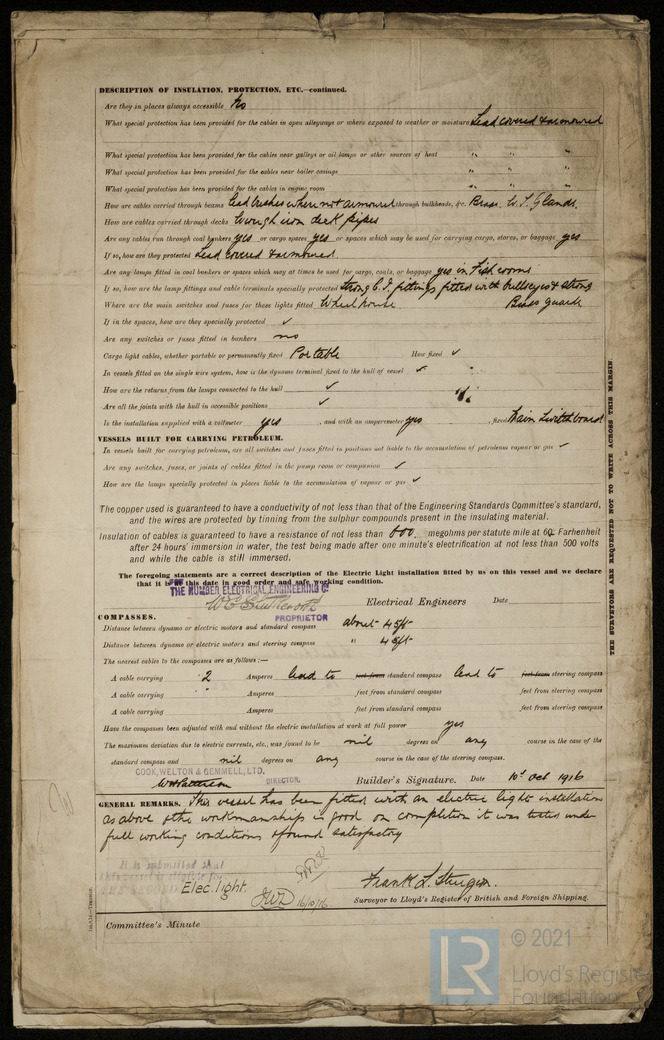 DESCRIPTION OF INSULATION, PROTECTION, ETC.—continued.
Are they in places always accessible No
What special protection has been provided for the cables in open alleyways or where exposed to weather or moisture Lead covered & armoured
What special protection has been provided for the cables near galleys or oil lamps or other sources of heat " " "
What special protection has been provided for the cables near boiler casings " " "
What special protection has been provided for the cables in engine room " " "
How are cables carried through beams lead bushes where not armoured through bulkheads, &c. Brass W.T. Glands.
How are cables carried through decks Wrough iron deck pipes
Are any cables run through coal bunkers yes or cargo spaces yes or spaces which may be used for carrying cargo, stores, or baggage yes
If so, how are they protected Lead covered & armoured.
Are any lamps fitted in coal bunkers or spaces which may at times be used for cargo, coals, or baggage yes in Fish rooms
If so, how are the lamp fittings and cable terminals specially protected Strong C.I. fittings fitted with bullseyes & strong
Where are the main switches and fuses for these lights fitted Wheelhouse Brass guards
If in the spaces, how are they specially protected ✓
Are any switches or fuses fitted in bunkers no
Cargo light cables, whether portable or permanently fixed Portable How fixed ✓
In vessels fitted on the single wire system, how is the dynamo terminal fixed to the hull of vessel ✓
How are the returns from the lamps connected to the hull ✓
Are all the joints with the hull in accessible positions ✓
Is the installation supplied with a voltmeter yes, and with an amperemeter yes, fixed Main Switchboard
VESSELS BUILT FOR CARRYING PETROLEUM.
In vessels built for carrying petroleum, are all switches and fuses fitted in positions not liable to the accumulation of petroleum vapour or gas ✓
Are any switches, fuses, or joints of cables fitted in the pump room or companion ✓
How are the lamps specially protected in places liable to the accumulation of vapour or gas ✓
The copper used is guaranteed to have a conductivity of not less than that of the Engineering Standards Committee's standard,
and the wires are protected by tinning from the sulphur compounds present in the insulating material.
Insulation of cables is guaranteed to have a resistance of not less than 600 megohms per statute mile at 60° Farhenheit
after 24 hours' immersion in water, the test being made after one minute's electrification at not less than 500 volts
and while the cable is still immersed.
The foregoing statements are a correct description of the Electric Light installation fitted by us on this vessel and we declare
that it is at this date in good order and safe working condition.
THE HUMBER ELECTRICAL ENGINEERING Co
Electrical Engineers Date
PROPRIETOR
COMPASSES.
Distance between dynamo or electric motors and standard compass about 45ft
Distance between dynamo or electric motors and steering compass " 45ft
The nearest cables to the compasses are as follows:—
A cable carrying 2 Amperes lead to feet from standard compass lead to feet from steering compass
A cable carrying " Amperes feet from standard compass feet from steering compass
A cable carrying Amperes feet from standard compass feet from steering compass
Have the compasses been adjusted with and without the electric installation at work at full power yes
The maximum deviation due to electric currents, etc., was found to be nil degrees on any course in the case of the
standard compass and nil degrees on any course in the case of the steering compass.
COOK, WELTON & GEMMELL, LTD.
DIRECTOR. Builder's Signature. Date 10th Oct 1916
GENERAL REMARKS. This vessel has been fitted with an electric light installation
as above & the workmanship is good on completion it was tested under
full working conditions & found satisfactory
It is submitted that
this vessel is eligible for
THE RECORD Elec. light.
16/10/16.
Frank L. Sturgeon.
Surveyor to Lloyd's Register of British and Foreign Shipping.
Committee's Minute
THE SURVEYORS ARE REQUESTED NOT TO WRITE ACROSS THIS MARGIN
LR
© 2021
Lloyd's Register
Foundation